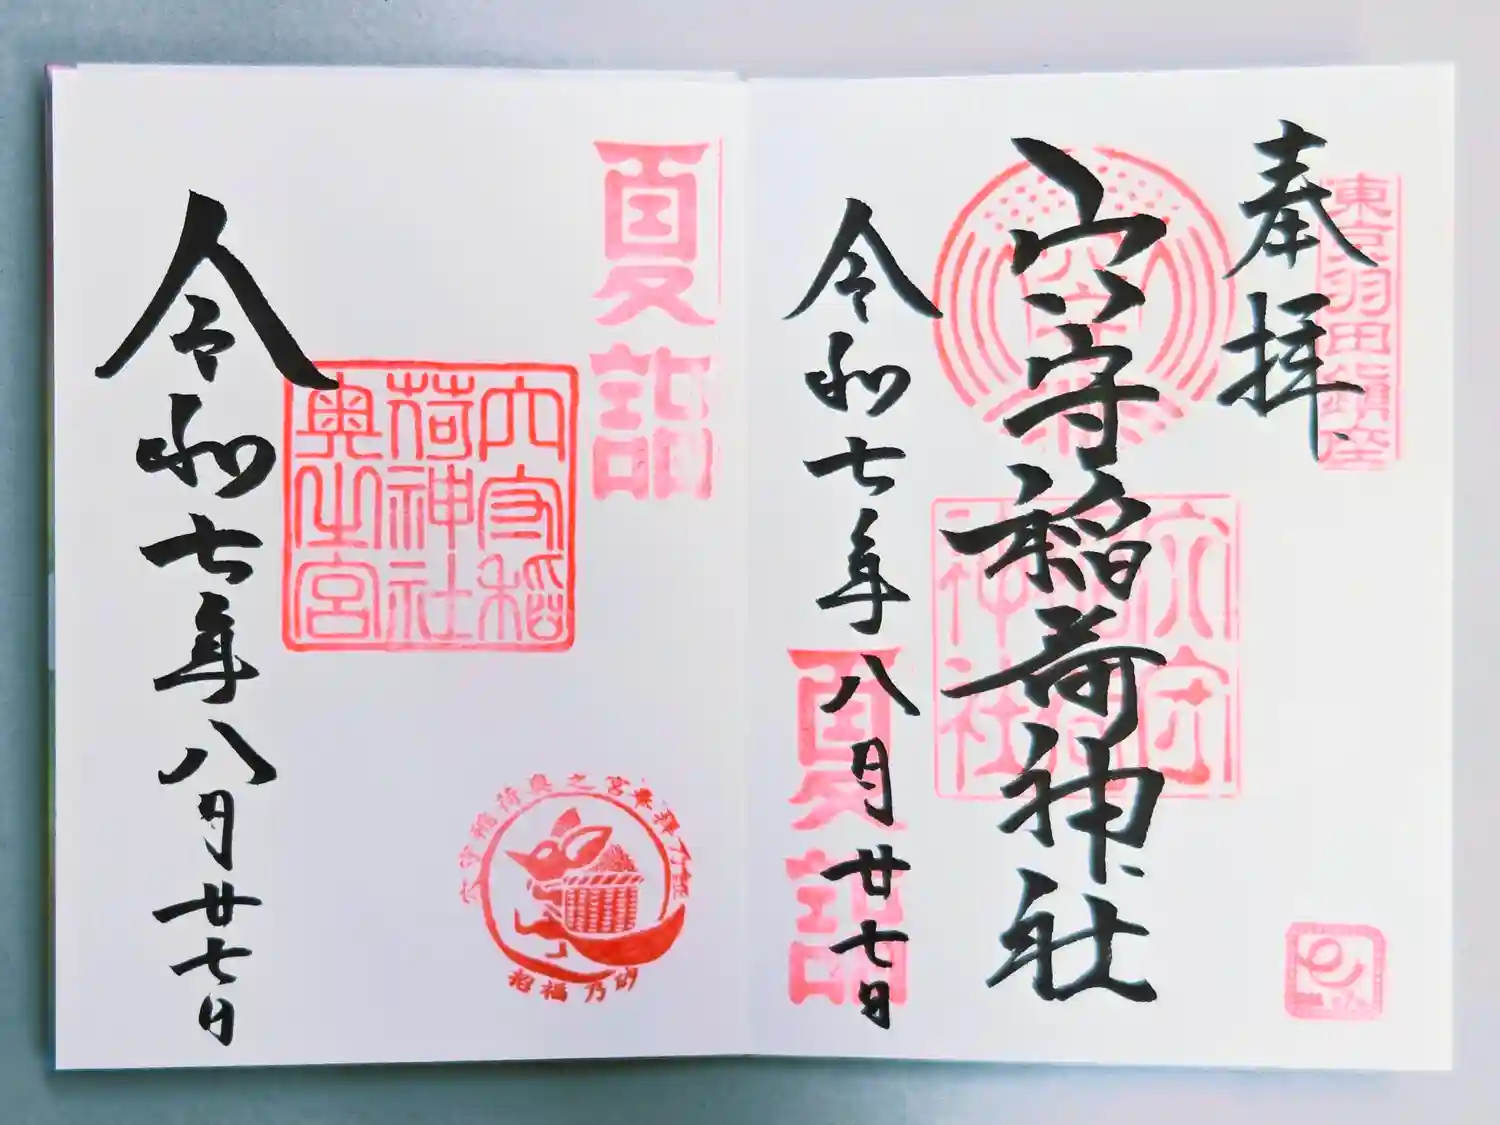 東京羽田鎮座
奉拝
穴守稲荷神社
穴守稲荷神社
令和七年八月廿七日
夏詣
夏詣
穴守稲荷神社奥之宮
穴守稲荷奥之宮参拝乃証
招福乃砂
令和七年八月廿七日